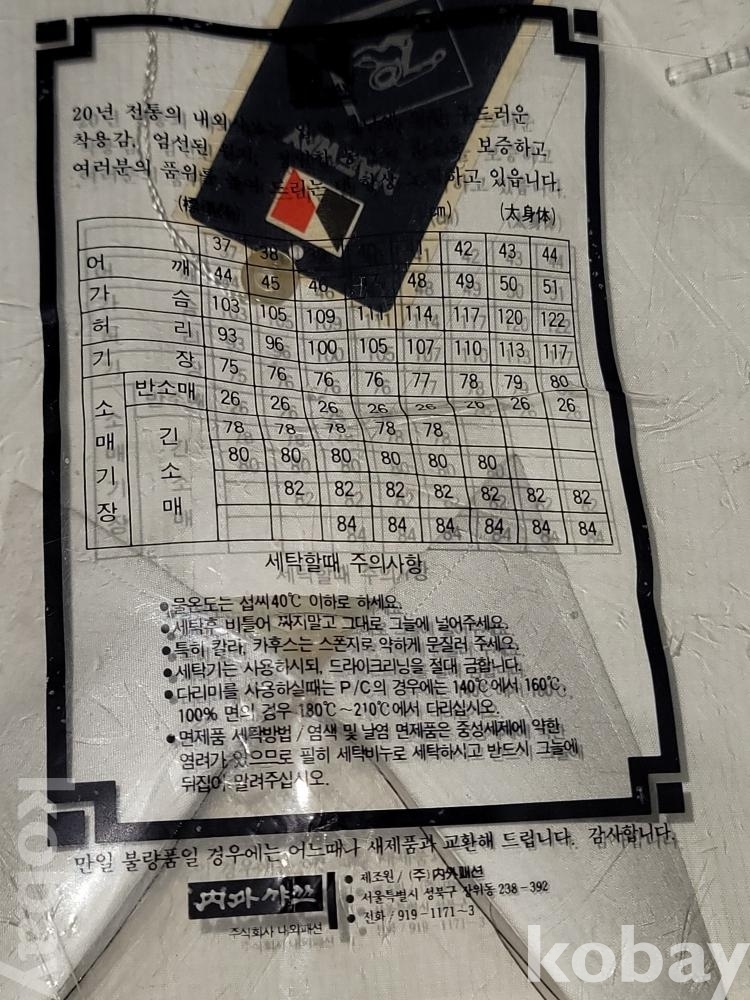 20년 전통의 내외 드러운
착용감, 엄선된 보증하고
여러분의 품위를 높여 드리는 하고 있읍니다.
(cm) (太身体)
37 38 39 40 41 42 43 44
어깨 44 45 46 47 48 49 50 51
가슴 103 105 109 111 114 117 120 122
허리 93 96 100 105 107 110 113 117
기장 75 76 76 76 77 78 79 80
소매기장 반소매 26 26 26 26 26 26 26 26
긴소매 78 78 78 78 78
80 80 80 80 80 80
82 82 82 82 82 82 82
84 84 84 84 84 84
세탁할때 주의사항
●물온도는 섭씨40℃ 이하로 하세요.
●세탁후 비틀어 짜지말고 그대로 그늘에 널어주세요.
●특히 칼라, 카후스는 스폰지로 약하게 문질러 주세요.
●세탁기는 사용하시되, 드라이크리닝을 절대 금합니다.
●다리미를 사용하실때는 P/C의 경우에는 140℃에서 160℃,
100% 면의 경우 180℃~210℃에서 다리십시오.
●면제품 세탁방법 / 염색 및 날염 면제품은 중성세제에 약한
염려가 있으므로 필히 세탁비누로 세탁하시고 반드시 그늘에
뒤집어 말려주십시오.
만일 불량품일 경우에는 어느때나 새제품과 교환해 드립니다. 감사합니다.
주식회사 내외패션
● 제조원 / (주)内外패션
● 서울특별시 성북구 장위동 238-392
● 전화 / 919-1171~3
kobay
kobay